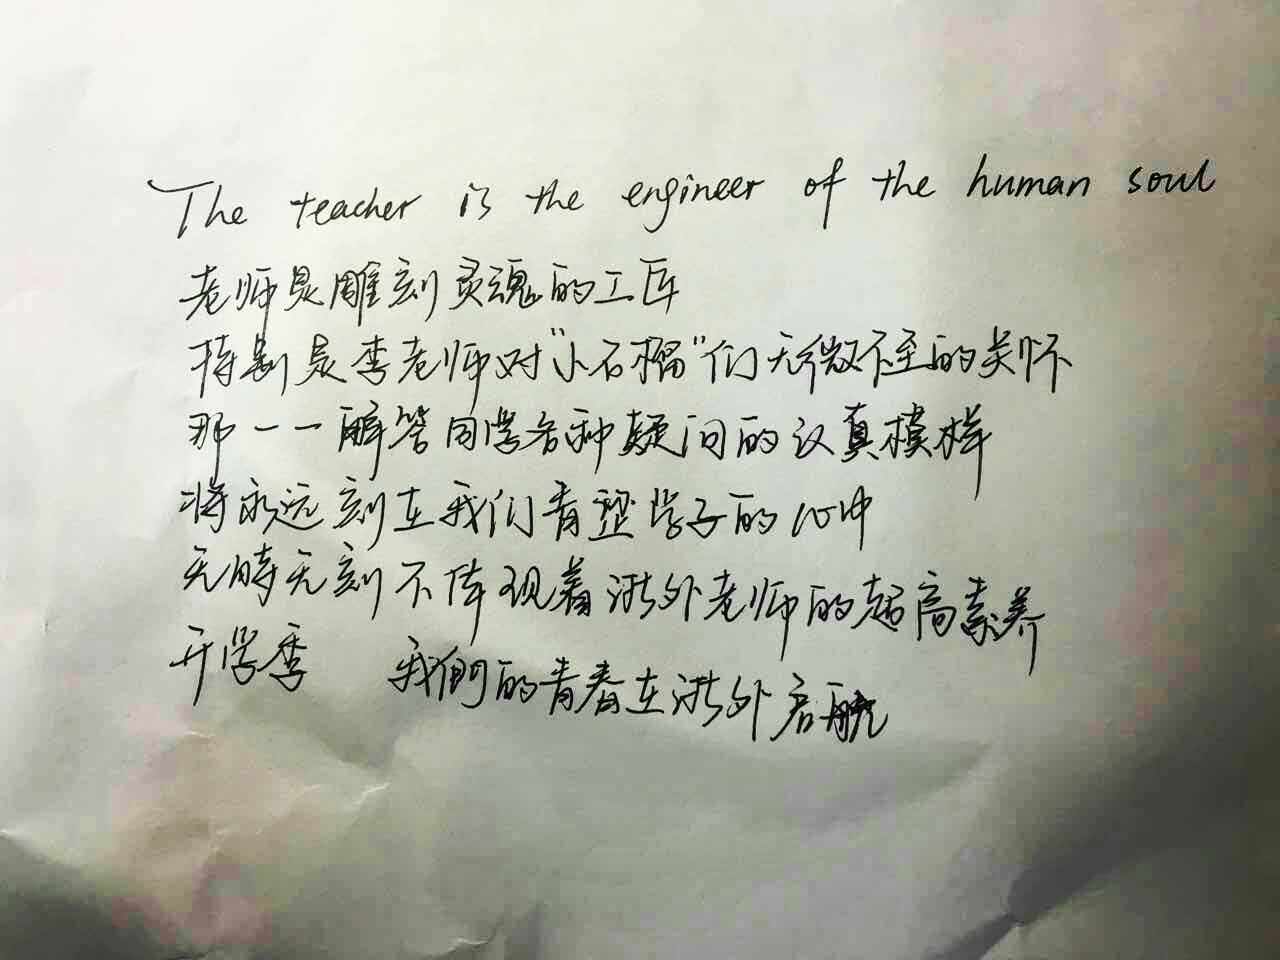 The teacher is the engineer of the human soul
老师是雕刻灵魂的工匠
特别是李老师对"小石榴"们无微不至的关怀
那一一解答同学各种疑问的认真模样
将永远刻在我们青蓝学子的心中
无時无刻不体现着浙外老师的超高素养
开学季 我們的青春在浙外启航